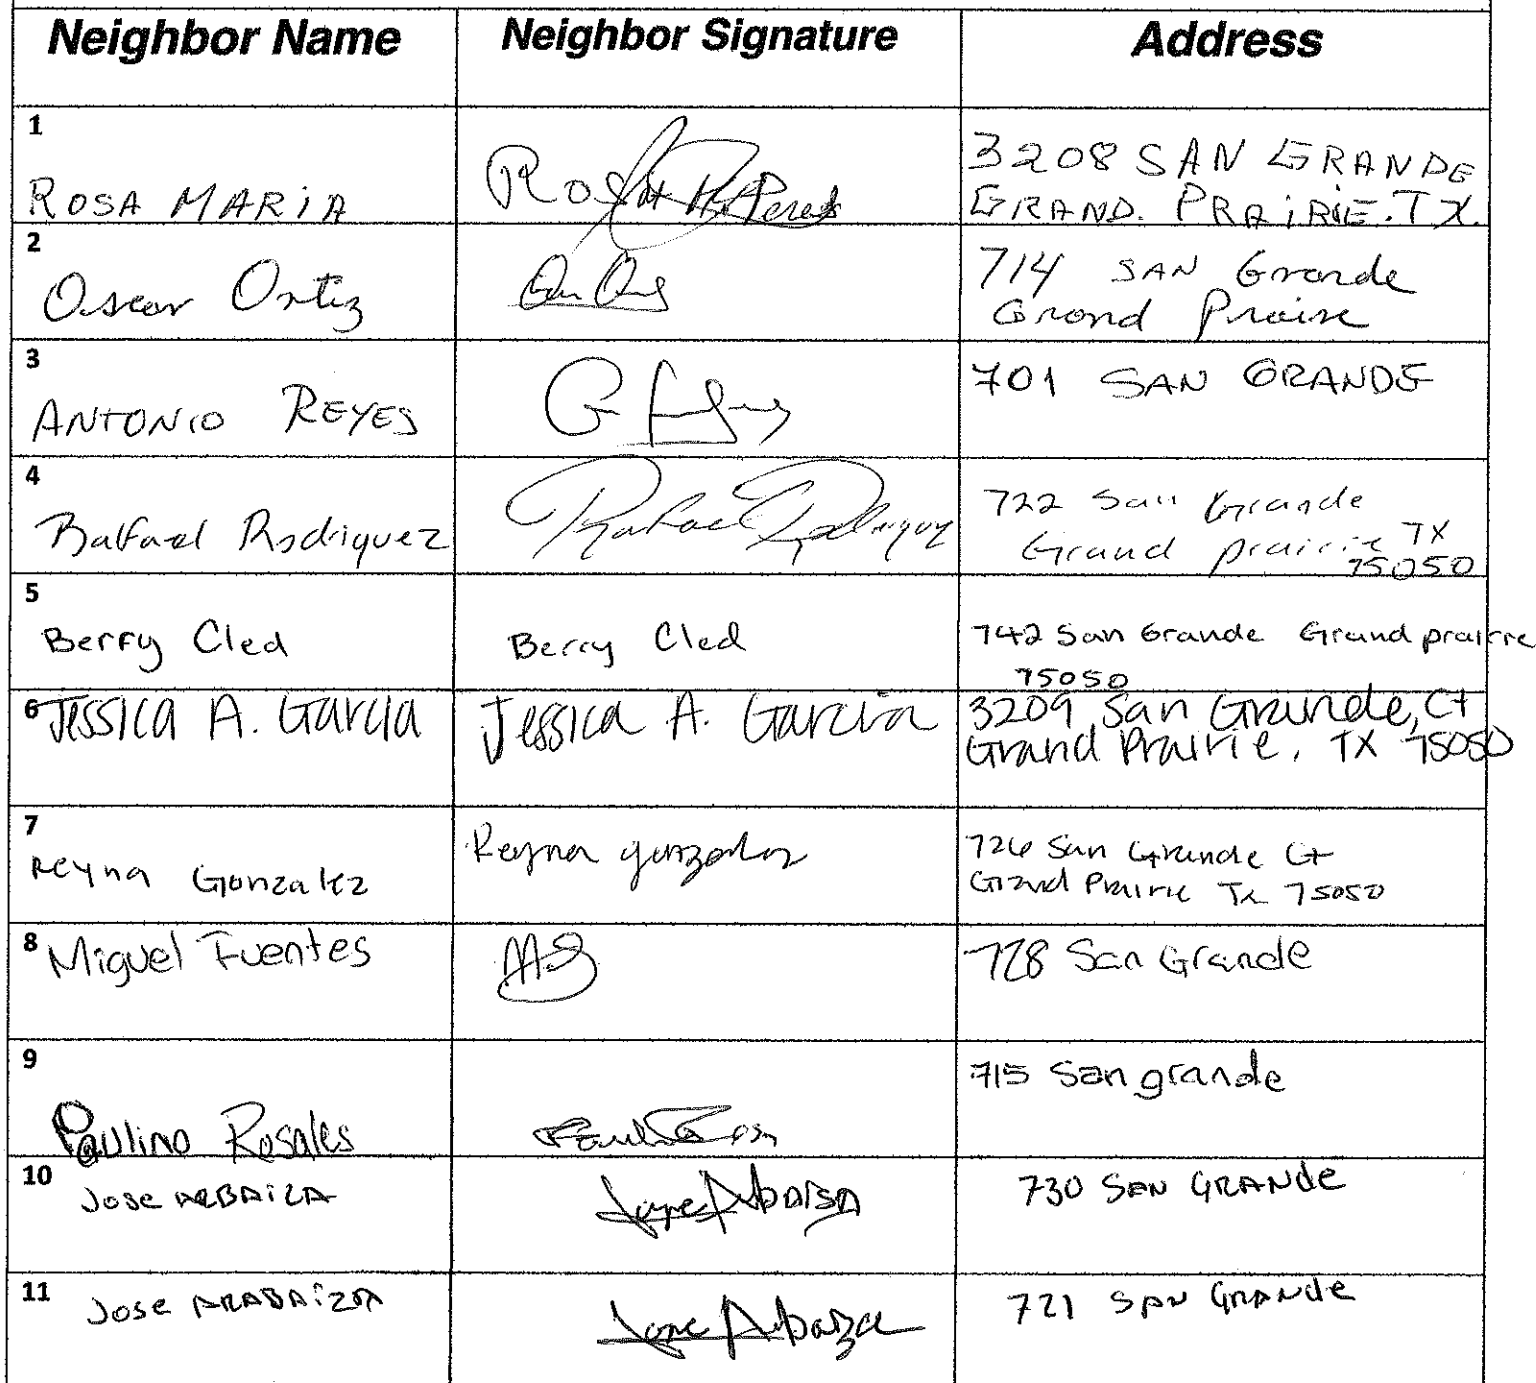 Neighbor Name Neighbor Signature Address
1
ROSA MARIA Rosa M. Perez 3208 SAN GRANDE
GRAND. PRAIRIE. TX.
2
Oscar Ortiz 714 SAN Grande
Grand Prairie
3
ANTONIO REYES 701 SAN GRANDE
4
Rafael Rodriguez Rafael Rodriguez 722 San Grande
Grand prairie TX
75050
5
Berry Cled Berry Cled 742 San Grande Grand prairie
75050
6 Jessica A. Garcia Jessica A. Garcia 3209 San Grande, Ct
Grand Prairie, TX 75050
7
Reyna Gonzalez Reyna gonzalez 726 San Grande Ct
Grand Prairie Tx 75050
8 Miguel Fuentes 728 San Grande
9
715 San grande
Paulino Rosales
10
Jose ARBAIZA Jose Arbaiza 730 SAN GRANDe
11
Jose ARABAiZA Jose Arbaiza 721 SAN GRANDe